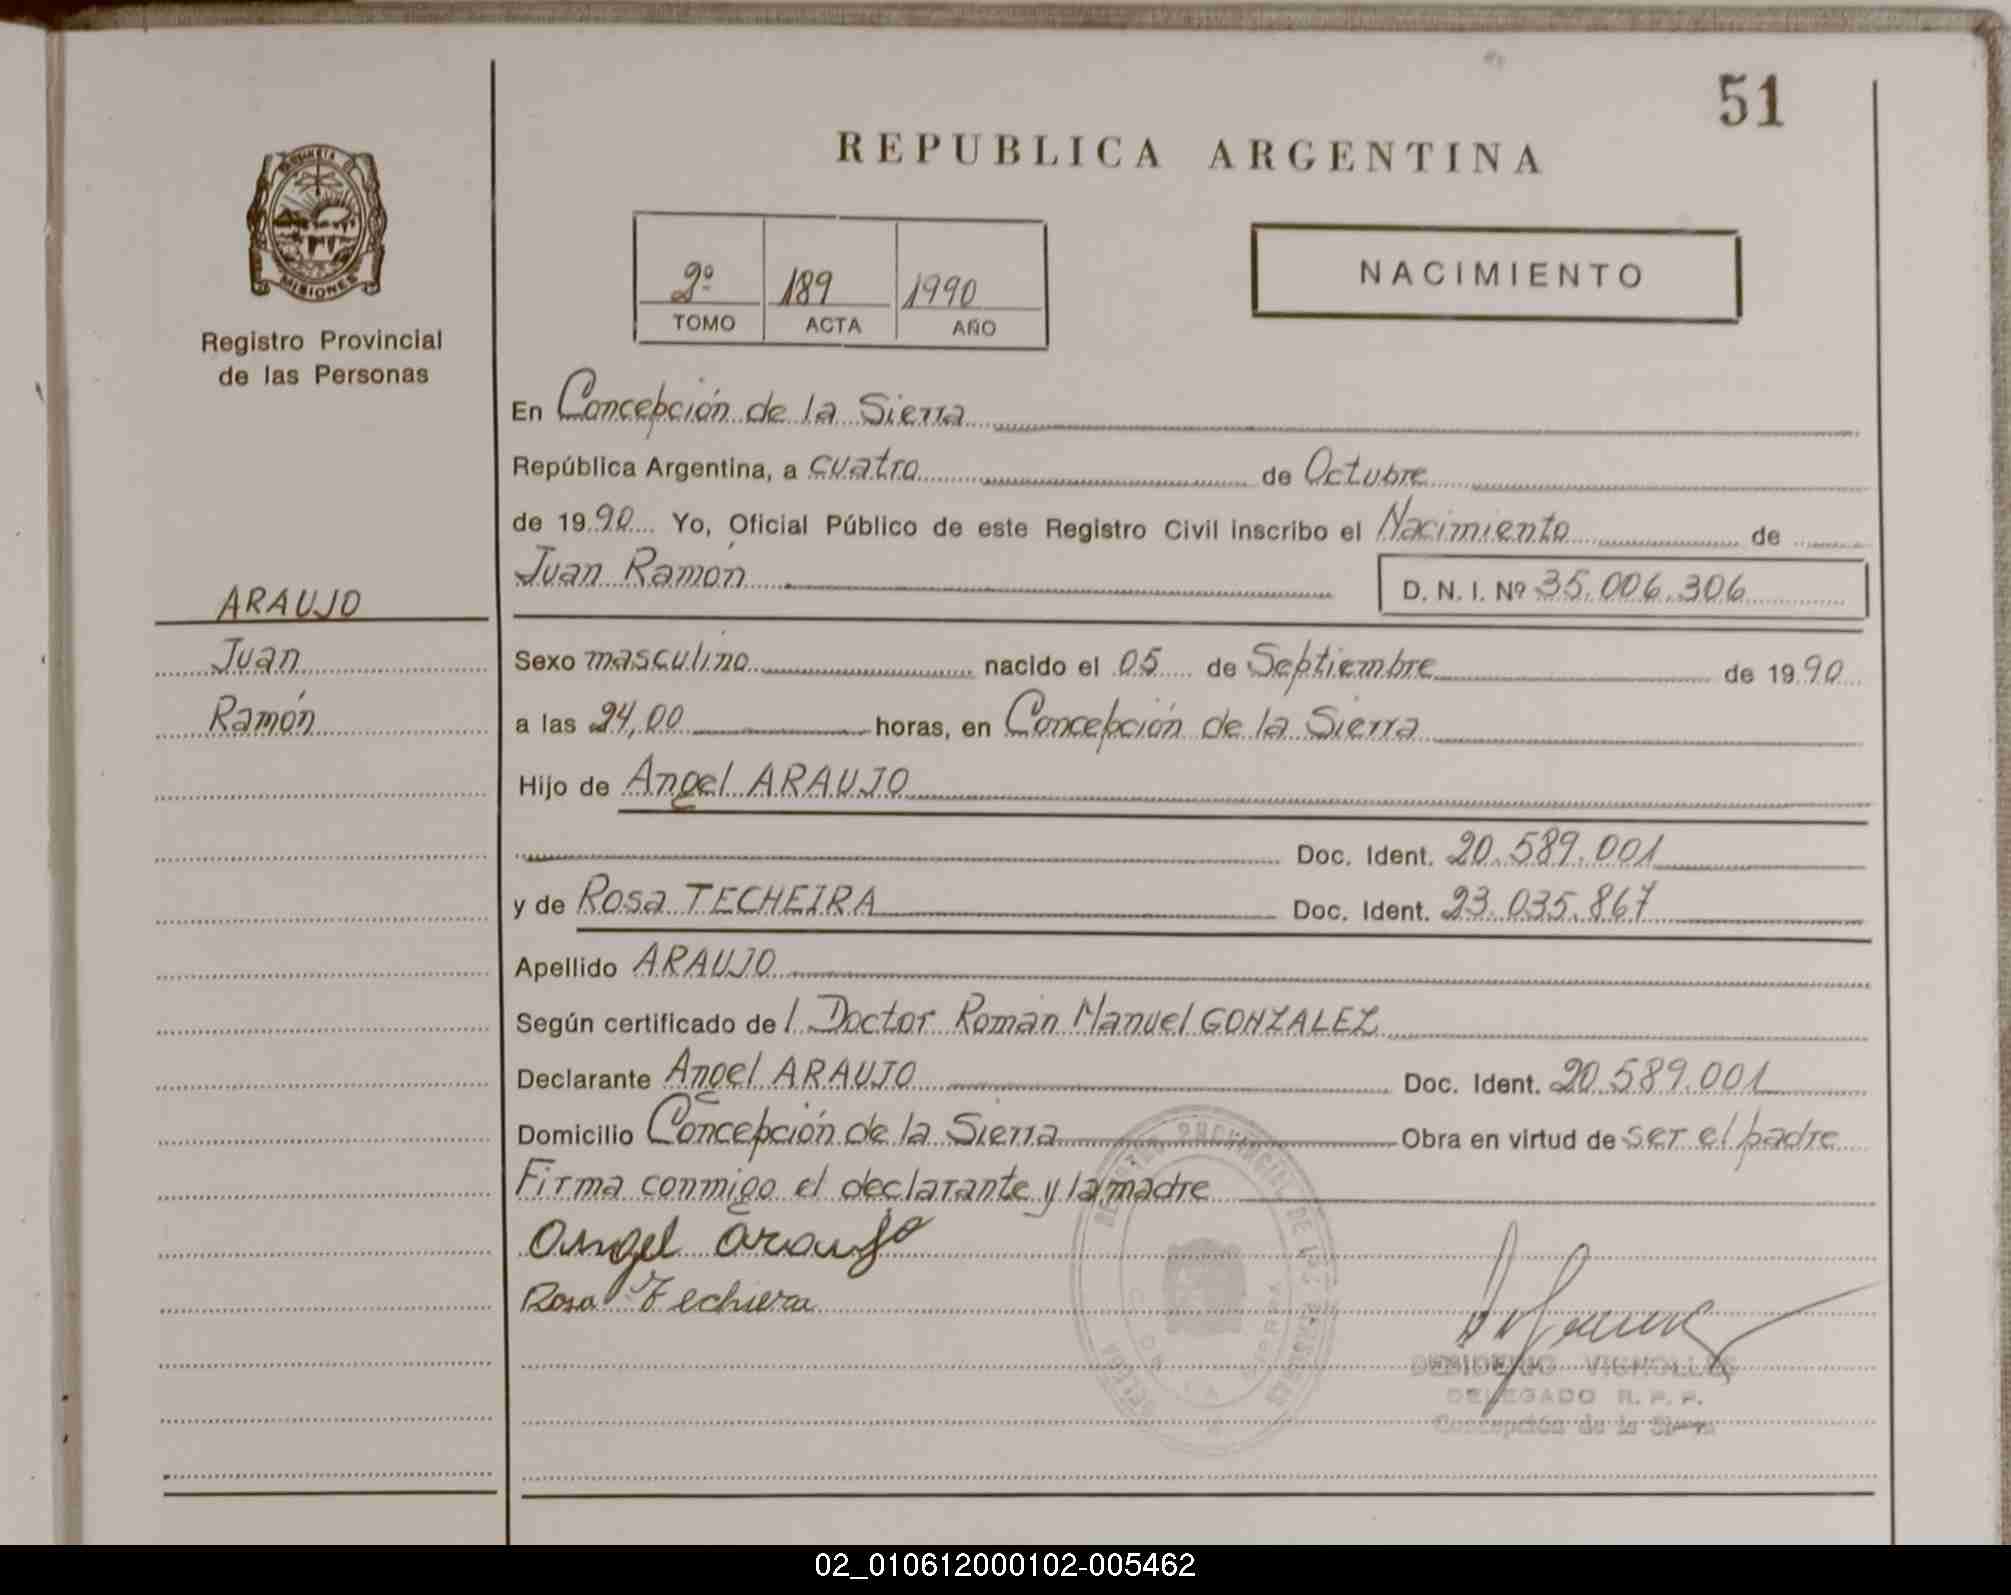 51
REPUBLICA ARGENTINA
MISIONES
Registro Provincial
de las Personas
2º 189 1990
TOMO ACTA AÑO
NACIMIENTO
En Concepción de la Sierra
República Argentina, a cuatro de Octubre
de 1990 Yo, Oficial Público de este Registro Civil inscribo el Nacimiento de
Juan Ramón D. N. I. Nº 35.006.306
ARAUJO
Juan
Ramón
Sexo masculino nacido el 05 de Septiembre de 1990
a las 24,00 horas, en Concepción de la Sierra
Hijo de Angel ARAUJO
Doc. Ident. 20.589.001
y de Rosa TECHEIRA Doc. Ident. 23.035.867
Apellido ARAUJO
Según certificado del Doctor Román Manuel GONZALEZ
Declarante Angel ARAUJO Doc. Ident. 20.589.001
Domicilio Concepción de la Sierra Obra en virtud de ser el padre
Firma conmigo el declarante y la madre
Angel Araujo
Rosa Techiera
DESIDERIO VIGNOLLES
DELEGADO R. P. P.
Concepción de la Sierra
02_010612000102-005462